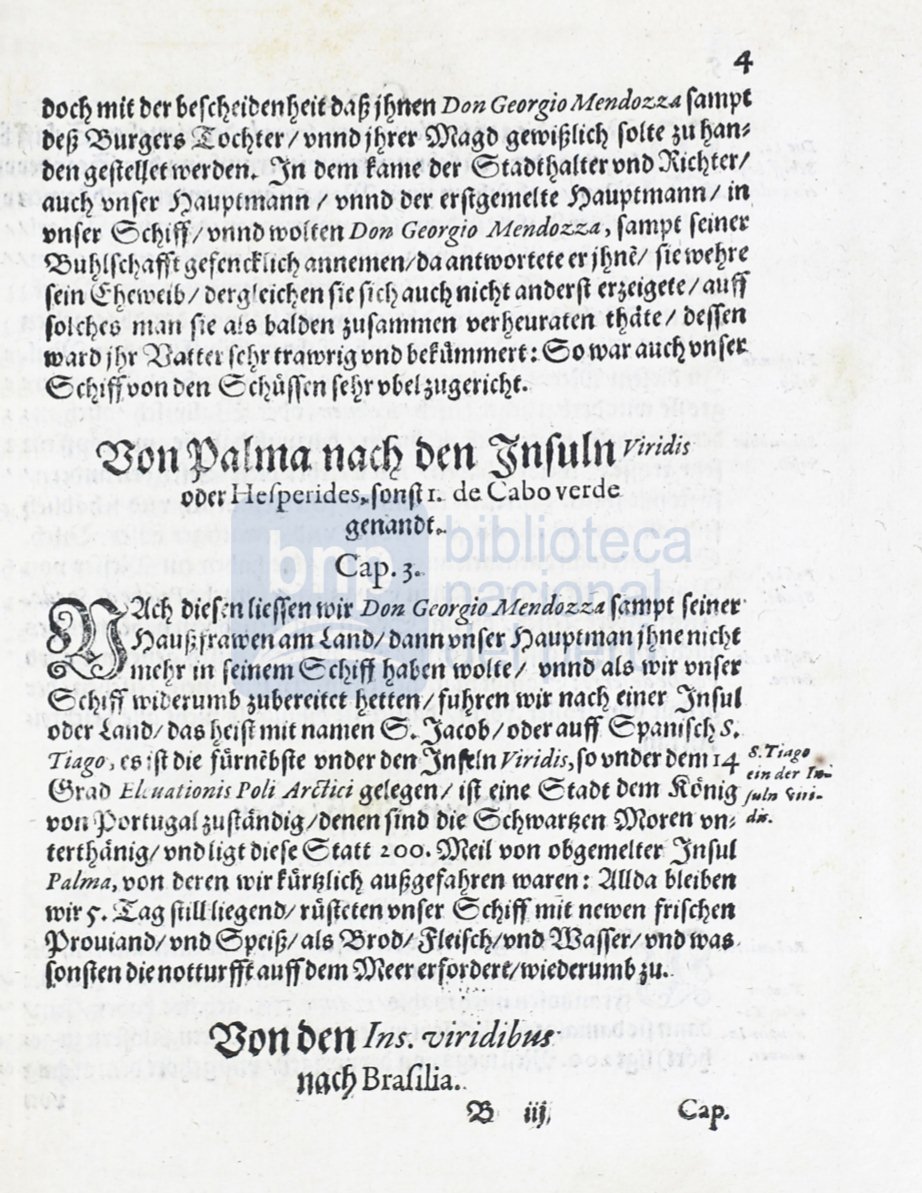 4
doch mit der bescheidenheit daß jhnen Don Georgio Mendozza sampt
deß Burgers Tochter / vnnd jhrer Magd gewißlich solte zu han⸗
den gestellet werden. In dem kame der Stadthalter vnd Richter/
auch vnser Hauptmann / vnnd der erstgemelte Hauptmann / in
vnser Schiff / vnnd wolten Don Georgio Mendozza, sampt seiner
Buhlschafft gefencklich annemen/da antwortete er jhnē/ sie wehre
sein Eheweib / dergleichen sie sich auch nicht anderst erzeigete / auff
solches man sie als balden zusammen verheuraten thäte / dessen
ward jhr Vatter sehr trawrig vnd bekümmert: So war auch vnser
Schiff von den Schüssen sehr vbel zugericht.
Von Palma nach den Insuln Viridis
oder Hesperides, sonst I. de Cabo verde
genandt.
Cap. 3.
NAch diesen liessen wir Don Georgio Mendozza sampt seiner
Haußfrawen am Land/ dann vnser Hauptman jhne nicht
mehr in seinem Schiff haben wolte / vnnd als wir vnser
Schiff widerumb zubereitet hetten / fuhren wir nach einer Insul
oder Land / das heist mit namen S. Jacob / oder auff Spanisch S.
Tiago, es ist die fürnēbste vnder den Inseln Viridis, so vnder dem 14
Grad Eleuationis Poli Arctici gelegen / ist eine Stadt dem König
von Portugal zuständig/denen sind die Schwartzen Moren vn⸗
terthänig/ vnd ligt diese Statt 200. Meil von obgemelter Insul
Palma, von deren wir kürtzlich außgefahren waren: Allda bleiben
wir 5. Tag still liegend/ rüsteten vnser Schiff mit newen frischen
Prouiand/ vnd Speiß/ als Brod/ Fleisch/vnd Wasser/ vnd was
sonsten die notturfft auff dem Meer erfordert/wiederumb zu.
S. Tiago
ein der In⸗
suln Viri-
dis.
Von den Ins. viridibus
nach Brasilia.
B iij
Cap.
bnp biblioteca
nacional
del perú